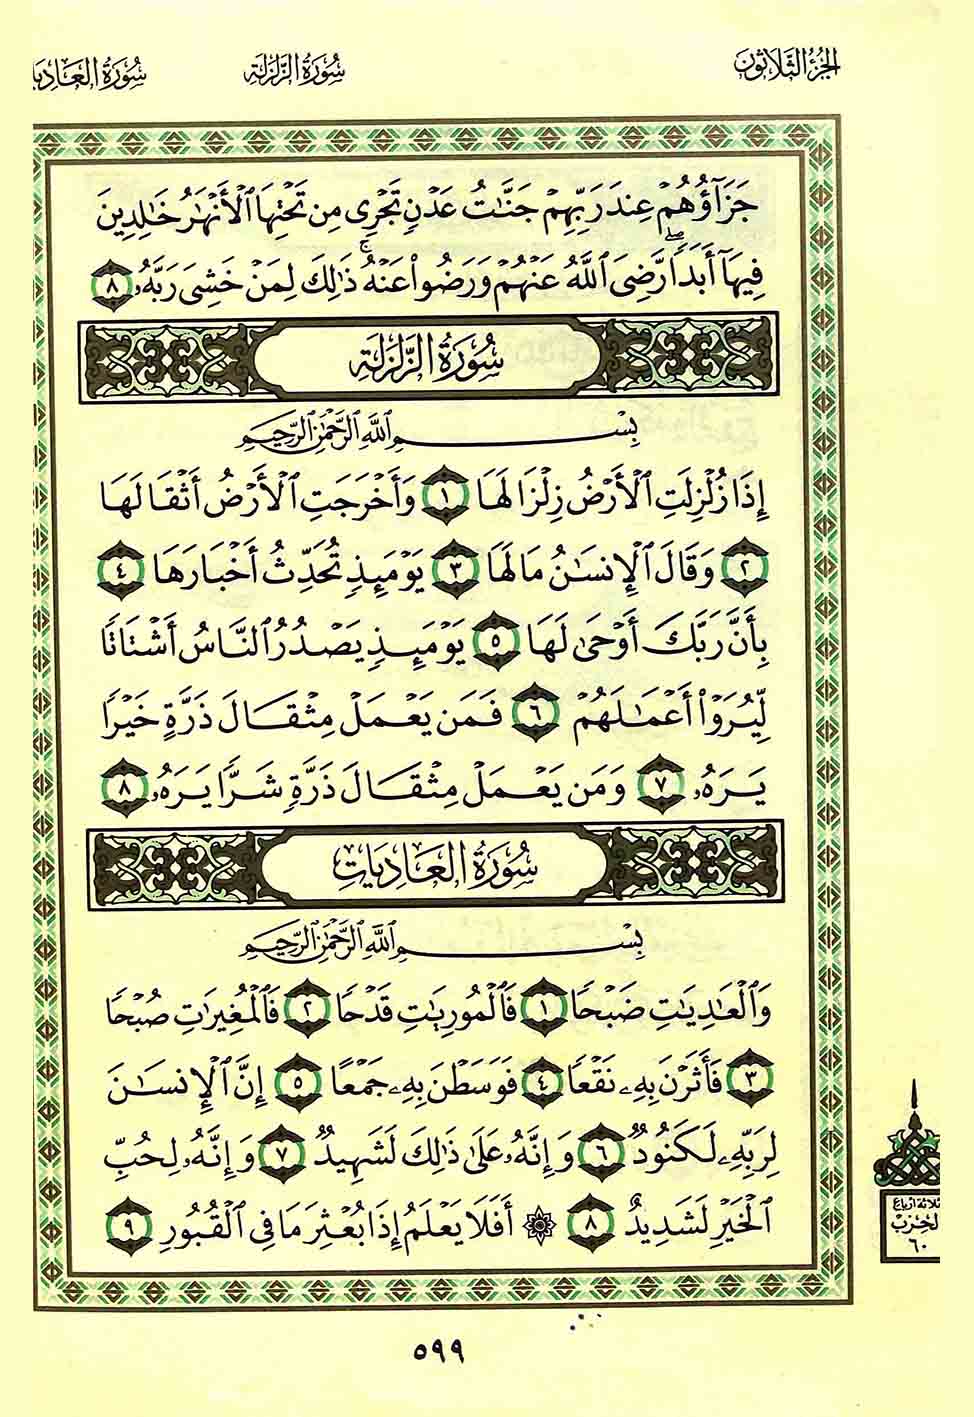 الجزء الثلاثون
سورة الزلزلة
سورة العاديا
جَزَآؤُهُمْ عِندَ رَبِّهِمْ جَنَّٰتُ عَدْنٍ تَجْرِى مِن تَحْتِهَا ٱلْأَنْهَٰرُ خَٰلِدِينَ
فِيهَآ أَبَدًۭا ۖ رَّضِىَ ٱللَّهُ عَنْهُمْ وَرَضُوا۟ عَنْهُ ۚ ذَٰلِكَ لِمَنْ خَشِىَ رَبَّهُۥ ٨
سُورَةُ الزَّلْزَلَةِ
بِسْمِ ٱللَّهِ ٱلرَّحْمَٰنِ ٱلرَّحِيمِ
إِذَا زُلْزِلَتِ ٱلْأَرْضُ زِلْزَالَهَا ١ وَأَخْرَجَتِ ٱلْأَرْضُ أَثْقَالَهَا
٢ وَقَالَ ٱلْإِنسَٰنُ مَا لَهَا ٣ يَوْمَئِذٍۢ تُحَدِّثُ أَخْبَارَهَا ٤
بِأَنَّ رَبَّكَ أَوْحَىٰ لَهَا ٥ يَوْمَئِذٍۢ يَصْدُرُ ٱلنَّاسُ أَشْتَاتًۭا
لِّيُرَوْا۟ أَعْمَٰلَهُمْ ٦ فَمَن يَعْمَلْ مِثْقَالَ ذَرَّةٍ خَيْرًۭا
يَرَهُۥ ٧ وَمَن يَعْمَلْ مِثْقَالَ ذَرَّةٍۢ شَرًّۭا يَرَهُۥ ٨
سُورَةُ العَادِيَاتِ
بِسْمِ ٱللَّهِ ٱلرَّحْمَٰنِ ٱلرَّحِيمِ
وَٱلْعَٰدِيَٰتِ ضَبْحًۭا ١ فَٱلْمُورِيَٰتِ قَدْحًۭا ٢ فَٱلْمُغِيرَٰتِ صُبْحًۭا
٣ فَأَثَرْنَ بِهِۦ نَقْعًۭا ٤ فَوَسَطْنَ بِهِۦ جَمْعًا ٥ إِنَّ ٱلْإِنسَٰنَ
لِرَبِّهِۦ لَكَنُودٌۭ ٦ وَإِنَّهُۥ عَلَىٰ ذَٰلِكَ لَشَهِيدٌۭ ٧ وَإِنَّهُۥ لِحُبِّ
ٱلْخَيْرِ لَشَدِيدٌ ٨ ۞ أَفَلَا يَعْلَمُ إِذَا بُعْثِرَ مَا فِى ٱلْقُبُورِ ٩
ثلاثة أرباع
الحزب
٦٠
٥٩٩